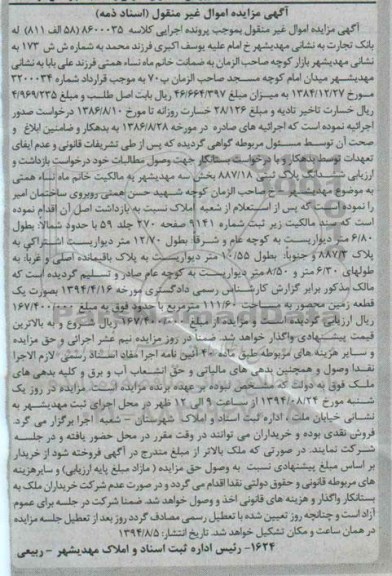 آگهی مزایده اموال غیر منقول (اسناد ذمه)
آگهی مزایده اموال غیر منقول بموجب پرونده اجرایی کلاسه ۸۶۰۰۰۳۵ (۵۸ الف ۸۱۱) له
بانک تجارت به نشانی مهدیشهر خ امام علیه یوسف اکبری فرزند محمد به شماره ش ش ۱۷۳ به
نشانی مهدیشهر بازار کوچه صاحب الزمان به ضمانت خانم ماه نساء همتی فرزند علی بابا به نشانی
مهدیشهر میدان امام کوچه مسجد صاحب الزمان پ۷۰ به موجب قرارداد شماره ۳۲۰۰۰۳۴
مورخ ۱۳۸۴/۱۲/۲۷ به میزان مبلغ ۴۶/۶۶۴/۳۹۷ ریال بابت اصل طلب و مبلغ ۴/۹۶۹/۲۳۵
ریال خسارت تاخیر تادیه و مبلغ ۲۸/۱۳۶ خسارت روزانه تا مورخ ۱۳۸۶/۸/۱۰ درخواست صدور
اجرائیه نموده است که اجرائیه های صادره در مورخه ۱۳۸۶/۸/۲۸ به بدهکار و ضامنین ابلاغ و
صحت آن توسط مسئول مربوطه گواهی گردیده که پس از طی تشریفات قانونی و عدم ایفای
تعهدات توسط بدهکار و با درخواست بستانکار جهت وصول مطالبات خود درخواست بازداشت و
ارزیابی ششدانگ پلاک ثبتی ۸۸۷/۱۸ بخش سه مهدیشهر به مالکیت خانم ماه نساء همتی
به موضوع مهدیشهر خ صاحب الزمان کوچه شهید حسن همتی روبروی ساختمان امیر
را نموده است که پس از استعلام از شعبه املاک نسبت به بازداشت اصل آن اقدام نموده
است که سند مالکیت زیر ثبت شماره ۹۱۴۱ صفحه ۴۷۰ جلد ۵۹ با حدود شمالا: بطول
۶/۸۰ متر دیواریست به کوچه عام و شرقا: بطول ۱۲/۷۰ متر دیواریست اشتراکی به
پلاک ۸۸۷/۳ و جنوبا: بطول ۱۰/۵۵ متر دیواریست به پلاک باقیمانده اصلی و غربا: به
طولهای ۶/۳۰ متر و ۸/۵۰ متر دیواریست به کوچه عام صادر و تسلیم گردیده است که
مالک مذکور برابر گزارش کارشناس رسمی دادگستری مورخه ۱۳۹۴/۴/۱۶ بصورت یک
قطعه زمین محصور به مساحت ۱۱۱/۶۰ مترمربع با حدود فوق به مبلغ ۱۶۷/۴۰۰/۰۰۰
ریال ارزیابی گردیده است و مزایده از مبلغ ۱۶۷/۴۰۰/۰۰۰ ریال شروع و به بالاترین
قیمت پیشنهادی واگذار خواهد شد. ضمنا در روز مزایده نیم عشر اجرائی و حق مزایده
و سایر هزینه های مربوطه طبق ماده ۴۰ آئین نامه اجرا مفاد اسناد رسمی لازم الاجرا
نقدا وصول و همچنین بدهی های مالیاتی و حق انشعاب آب و برق و کلیه بدهی های
ملک فوق به دولت که مشخص نبوده بر عهده برنده مزایده است. مزایده در روز یک
شنبه مورخ ۱۳۹۴/۰۸/۲۴ از ساعت ۹ الی ۱۲ ظهر در محل اجرای ثبت مهدیشهر به
نشانی خیابان ملت - اداره ثبت اسناد و املاک شهرستان - شعبه اجرا برگزار می گردد.
فروش نقدی بوده و خریداران می توانند در وقت مقرر در محل حضور یافته و در جلسه
شرکت نمایند. در صورتی که ملک بالاتر از مبلغ مندرج در آگهی فروخته شود از خریدار
بر اساس مبلغ پیشنهادی نسبت به وصول حق مزایده (مازاد مبلغ پایه ارزیابی) و سایرهزینه
های مربوطه قانونی و حقوق دولتی نقدا اقدام می گردد و در صورت عدم شرکت خریداران ملک به
بستانکار واگذار و هزینه های قانونی اخذ و وصول خواهد شد. ضمنا شرکت در جلسه برای عموم
آزاد است و چنانچه روز تعیین شده با تعطیل رسمی مصادف گردد روز بعد از تعطیل جلسه مزایده
در همان ساعت و مکان تشکیل خواهد شد. تاریخ انتشار: ۱۳۹۴/۸/۵
۱۶۲۴- رئیس اداره ثبت اسناد و املاک مهدیشهر - ربیعی